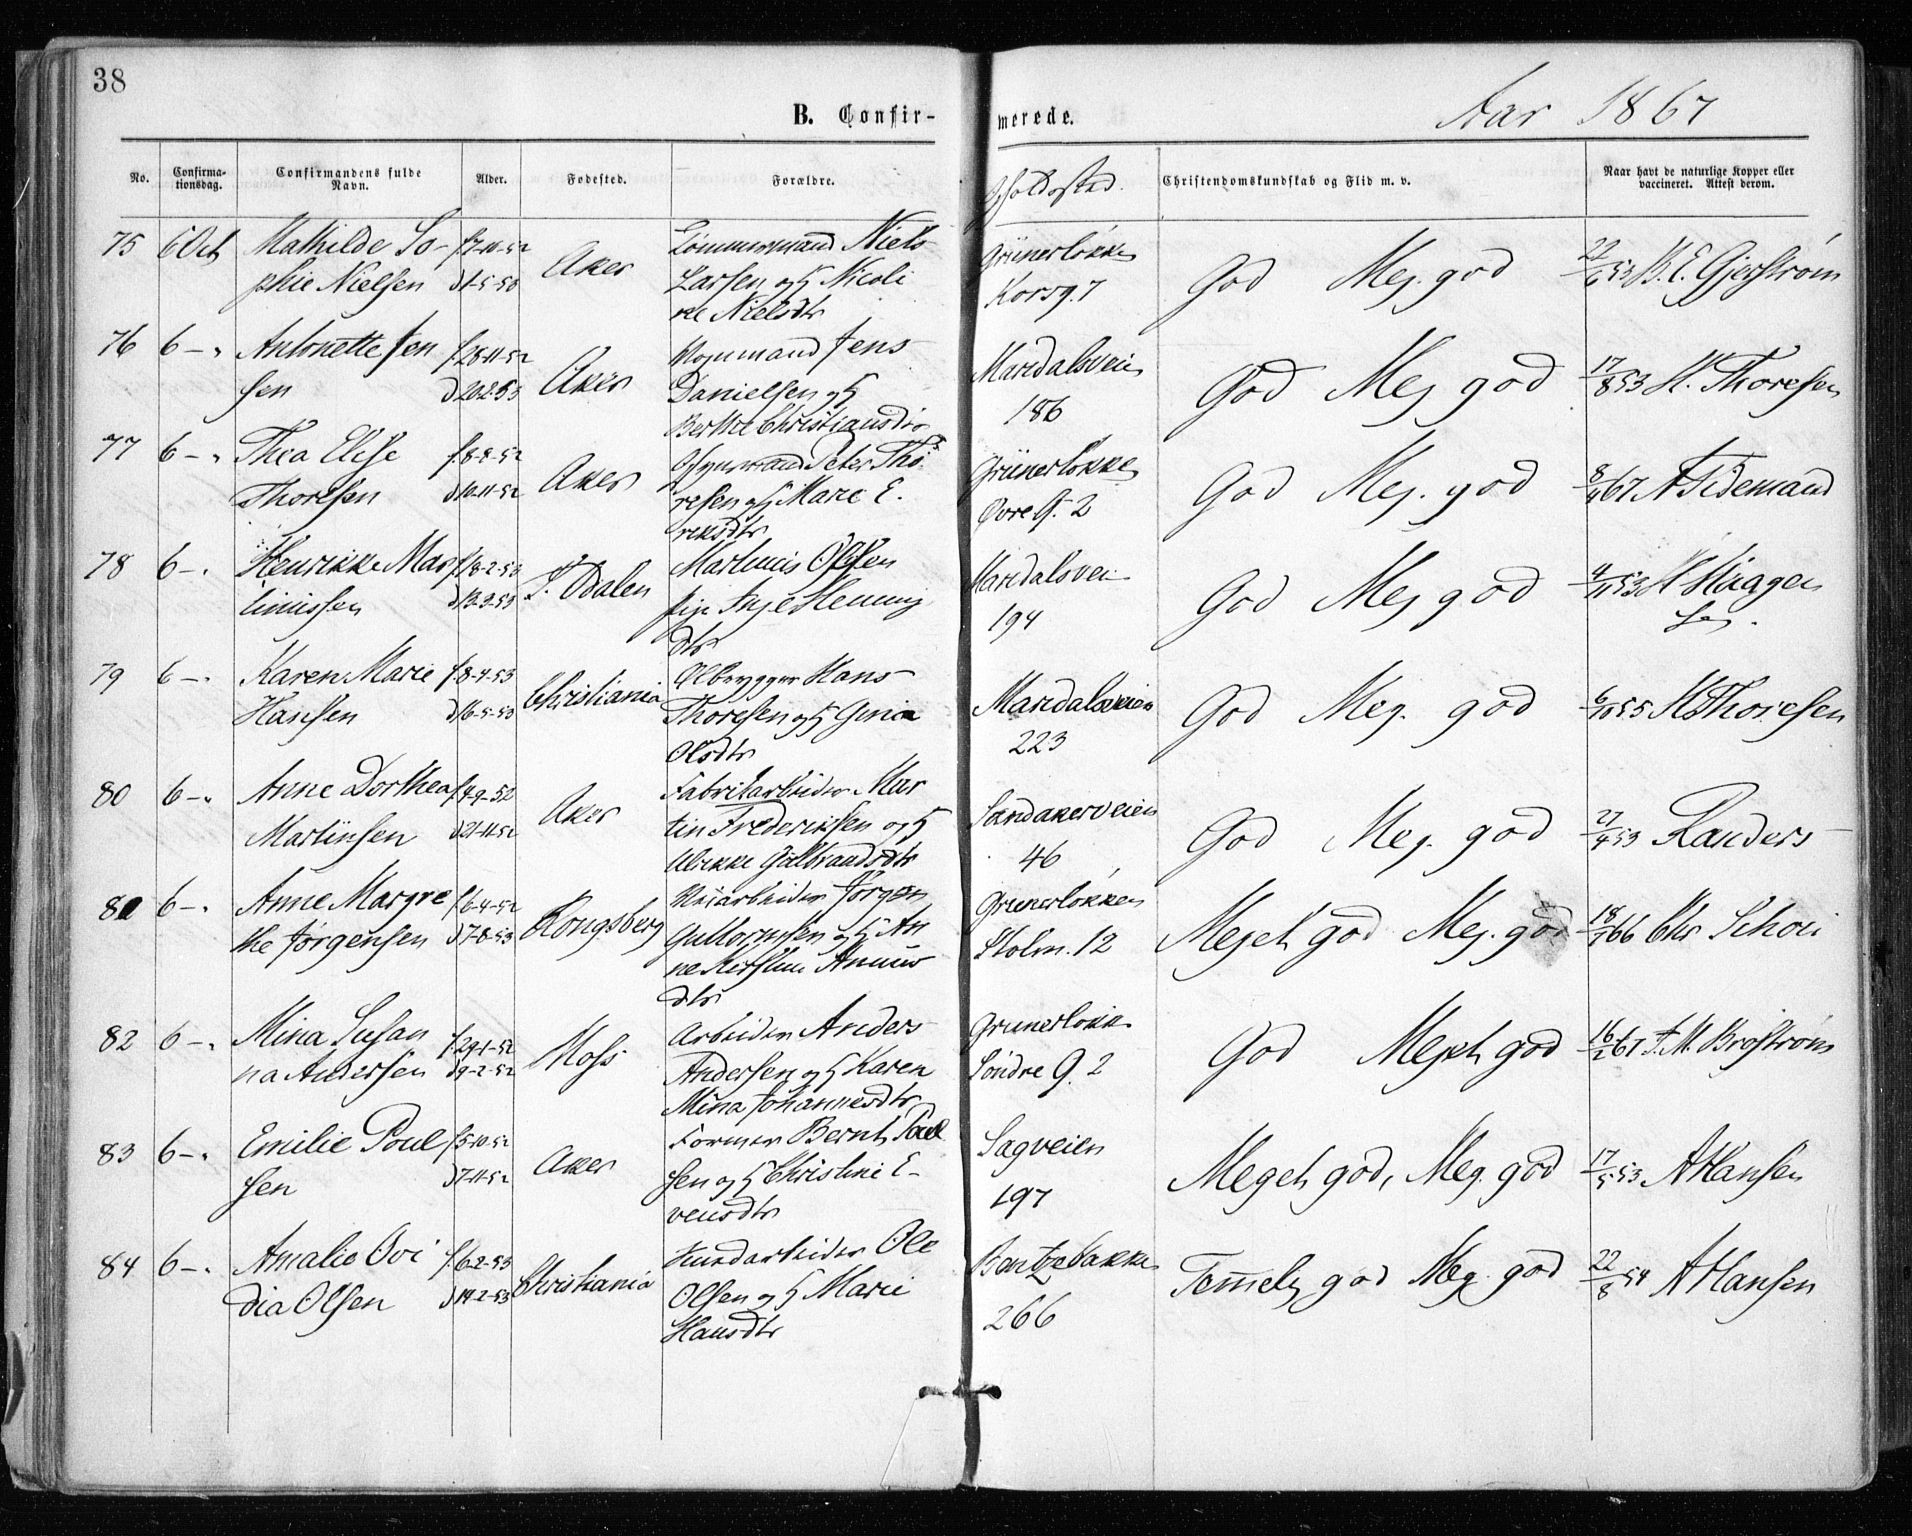 38
B. Confir-
merede.
Aar 1867
No.
Confirma-
tionsdag.
Confirmandens fulde
Navn.
Alder.
Fødested.
Forældre.
Opholdssted.
Christendomskundskab og Flid m. v.
Naar havt de naturlige Kopper eller
vaccineret. Attest derom.
75 6 Oct Mathilde So- f. 7-10-52 Aker Tømmermand Niels Grünerløkken God Meg. god 22/6 53 B. E. Gjerstrøm
phie Nielsen d 1-5-58 Larsen og H Nicoli Korsg. 7
ne Nielsdtr
76 6 - " Antonette Jen f. 28-11-52 Aker Vognmand Jens Maridalsveien God Meg god 17/8 53 H. Thoresen
sen d 20-2-53 Danielsen og H 186
Berthe Christiansdtr
77 6 - " Thea Elise f. 8-8-52 Aker Peter Tho Grünerløkken God Meg. god 8/4 67 A Tidemand
Thoresen d 10-11-52 resen og H Marie E. Øvre G. 2
riksdtr
78 6 - . Henrikke Mar f 18-2-53 S. Odalen Martinus Olsen Maridalsvei God Meg god 4/11 53 H Haagen
tinussen d 13-3-53 pige Inge Henning 194 sen.
dtr
79 6 - . Karen Marie f. 8-4-53 Christiania Ølbrygger Hans Maridalsveien God Meg. god 6/10 55 Thoresen
Hansen d 16-5-53 Thoresen og H 223
Olsdtr
80 6 - " Anne Dorthea f 4-9-52 Aker Fabrikarbeider Mar Sandakerveien God Meg. god 27/4 53 Randers
Martinsen d 21-11-52 tin Frederiksen og H 46
Ulrikke Gulbrandsdtr
81 6 - . Anne Margre f 6-4-52 Kongsberg Jørgen Grünerløkken Meget god Meg. god 18/1 66 Chr Schou
the Jørgensen d 7-8-53 Guttormsen og H An Holm. 12
ne Kirstine
dtr
82 6 - . Mina Susan f. 29-1-52 Moss Arbeider Anders Grünerløkk God Meget god 16/2 67 Brostrøm
na Andersen d 9-2-52 Andersen og H Karen Søndre G. 2
Mina Johannesdtr
83 6 - . Emilie Poul f 5-10-52 Aker Former Bernt Poul Sagveien Meget god, Meg. god 17/5 53 A Hansen
sen d 7-11-52 sen og H Christine E- 197
vensdtr
84 6 - . Amalie Ovi f. 6-2-53 Christiania Ole Bentzebakken Temmelig god Meg. god 22/8 54 A Hansen
dia Olsen d 14-2-53 Olsen og H Marie 266
Hansdtr